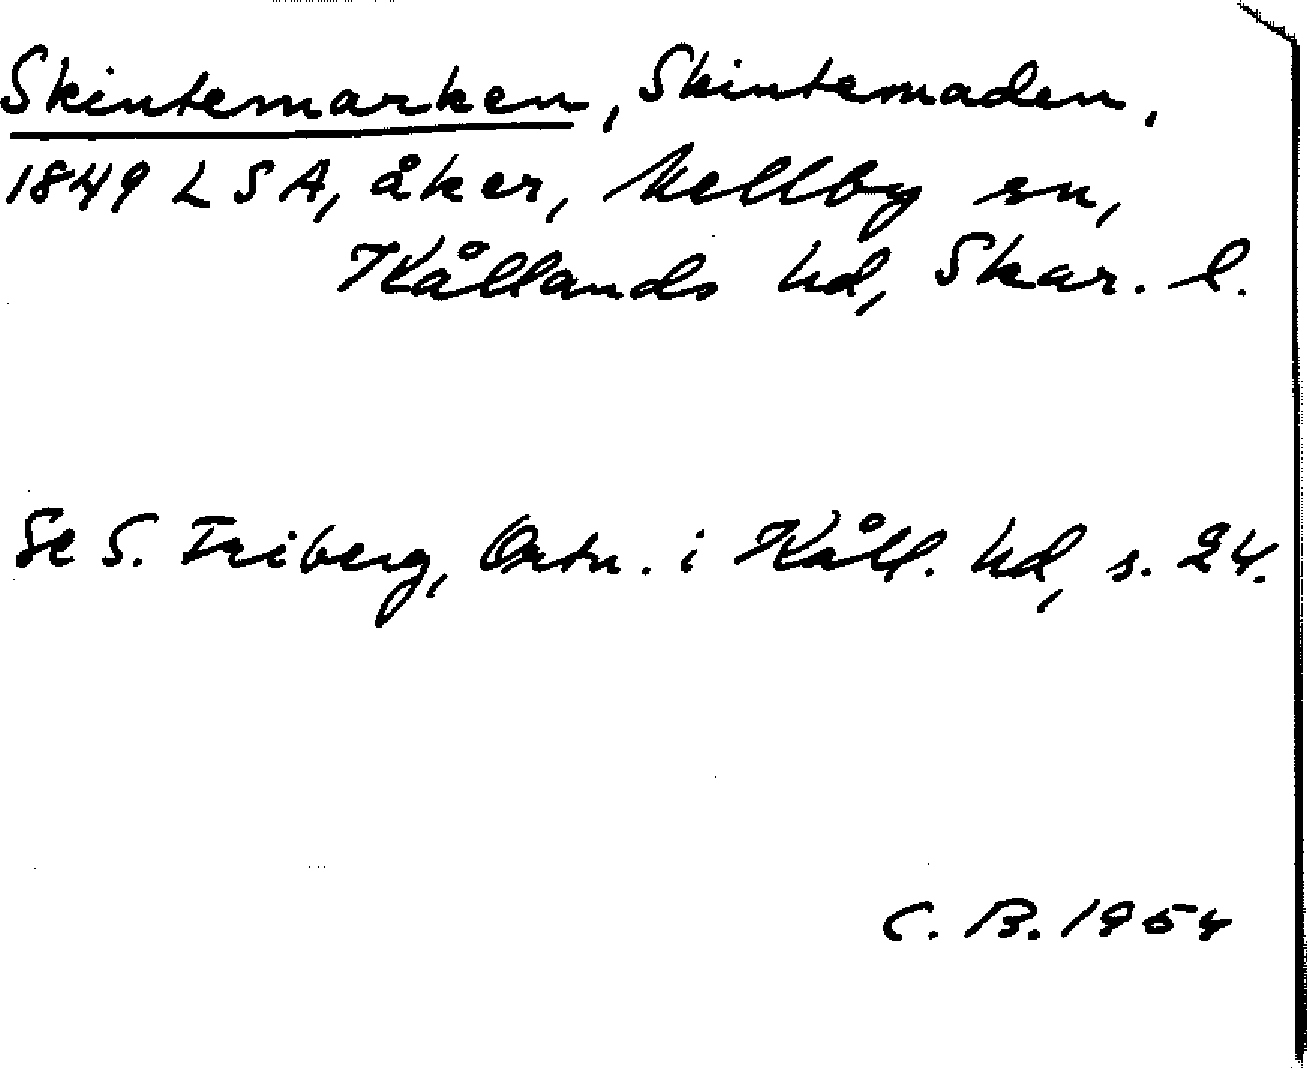 Skintemarken, Skintemaden,
1849 LSA, åker, Mellby sn,
Kållands hd, Skar. l.
Se S. Friberg, Ortn. i Kåll. hd, s. 24.
C. B. 1954